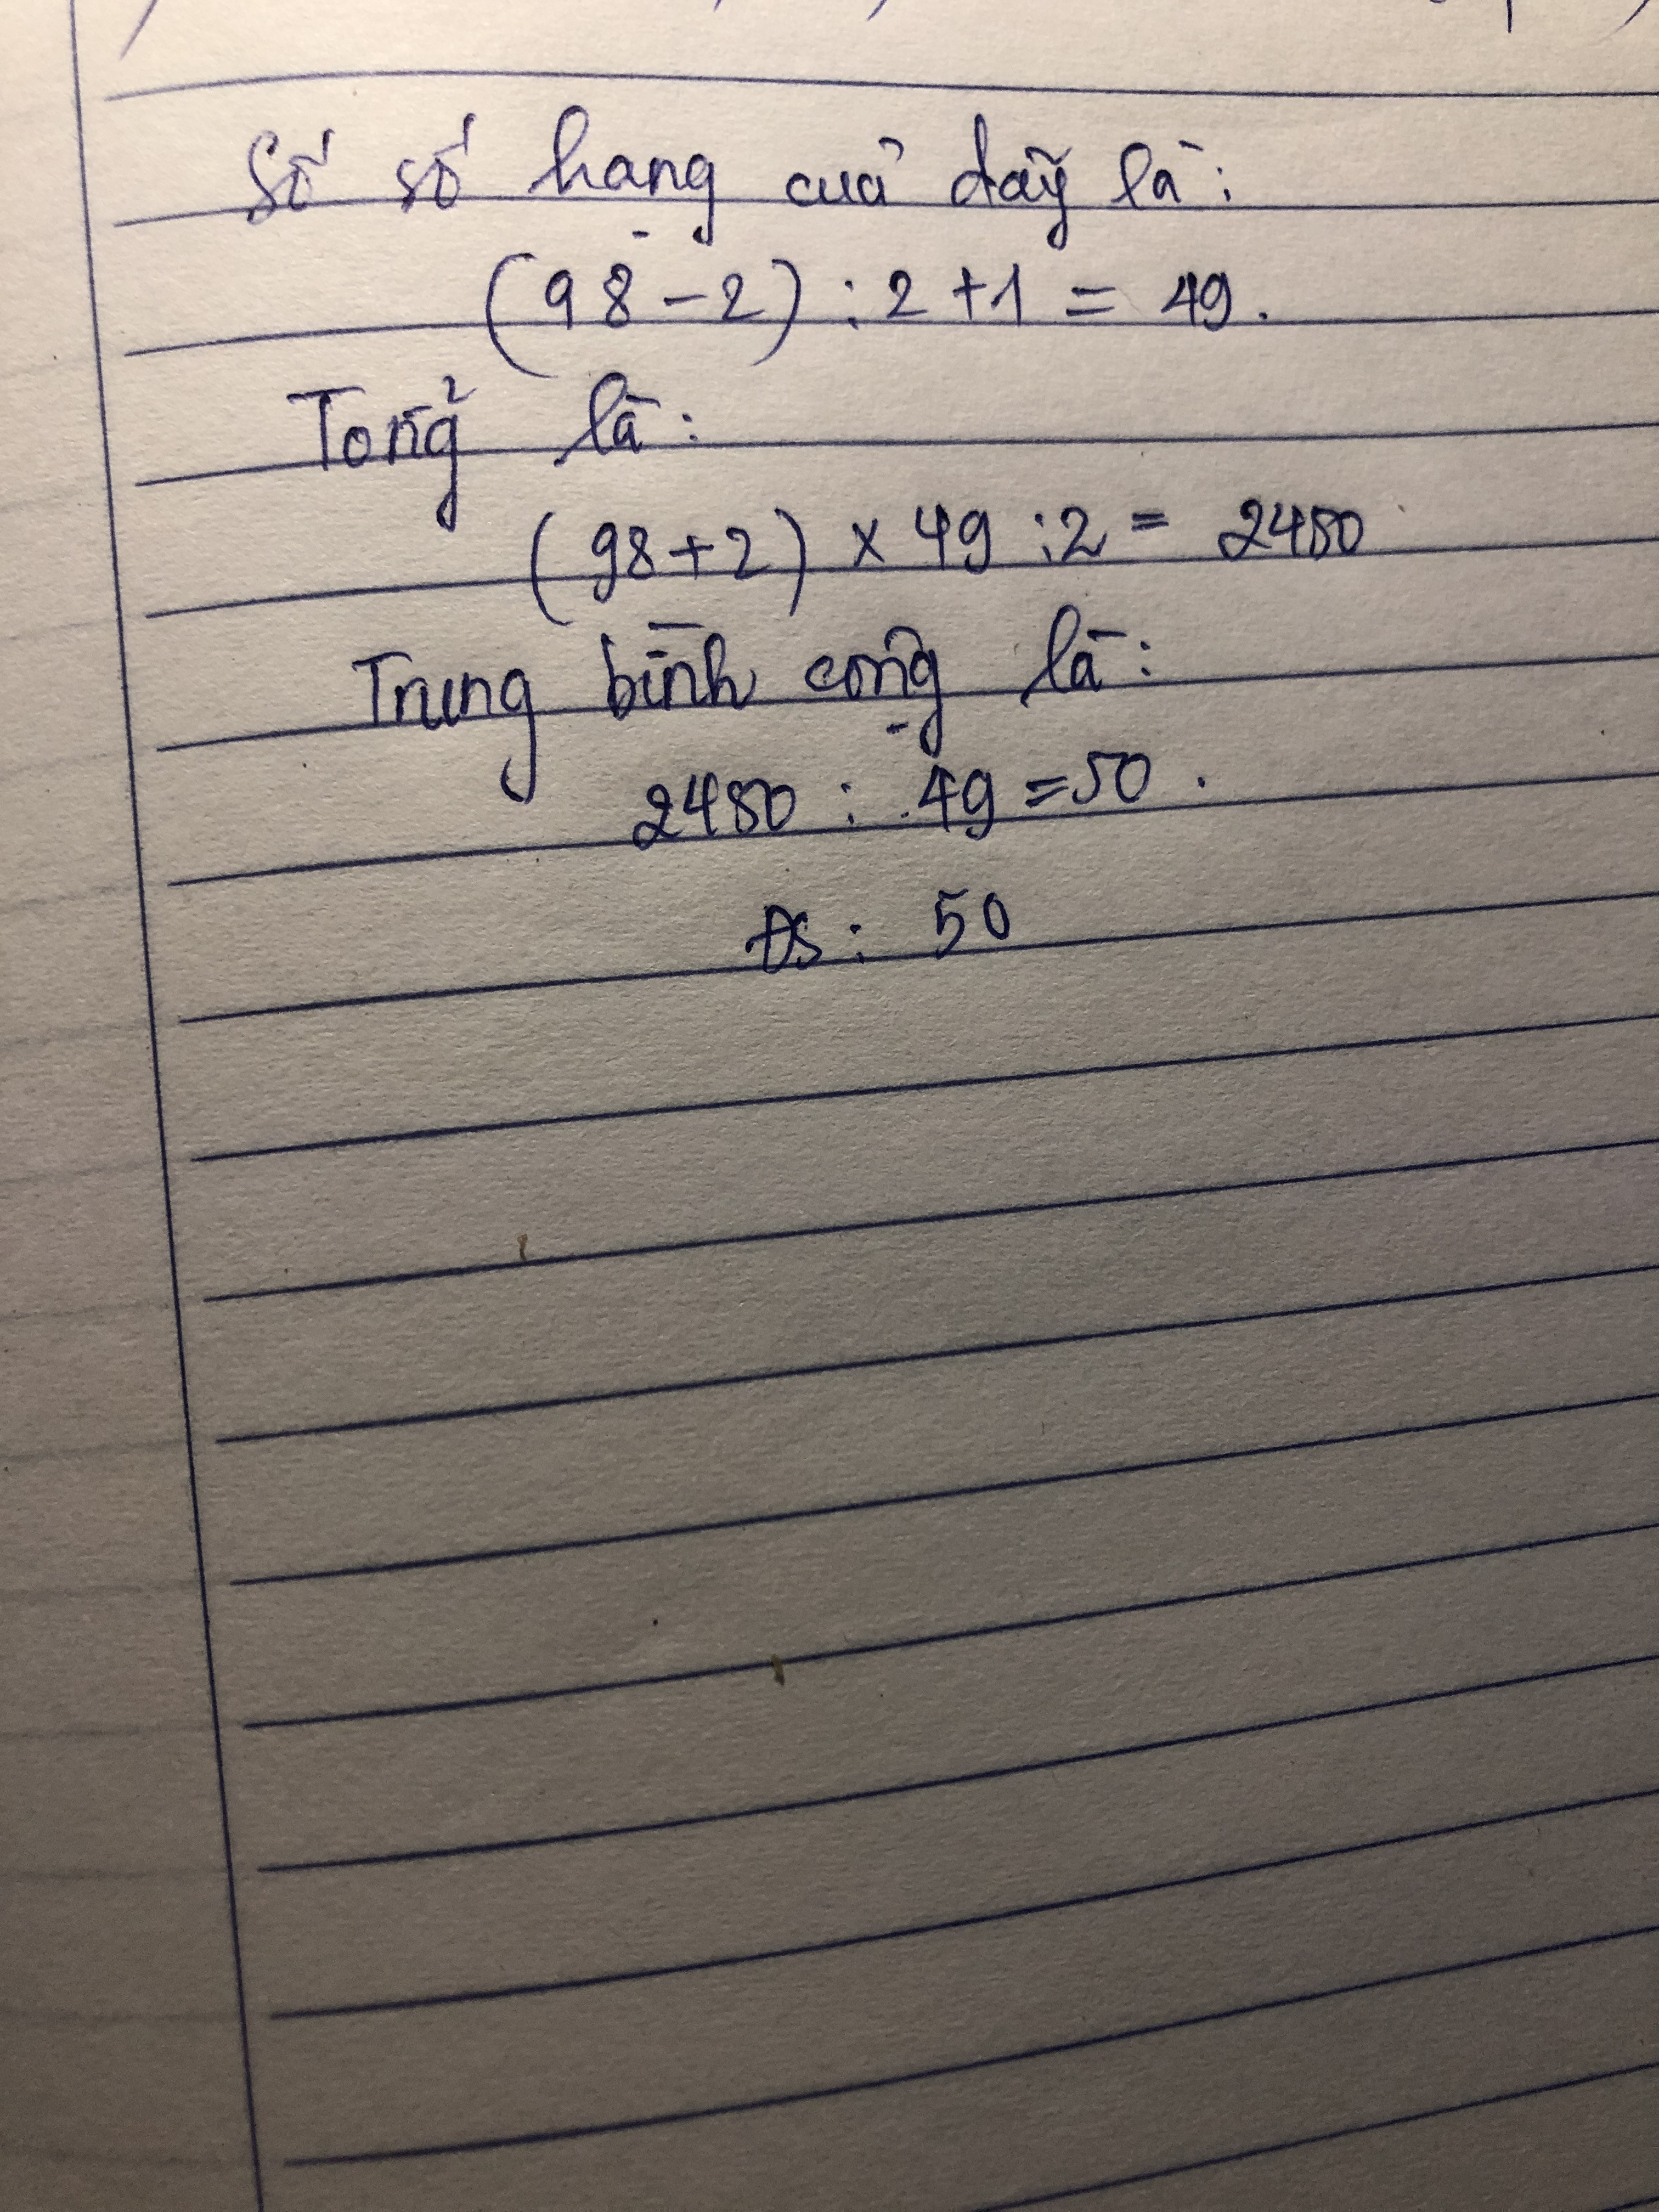 Số số hạng của dãy là:
(98 - 2) : 2 + 1 = 49.
Tổng là:
(98 + 2) x 49 : 2 = 2450
Trung bình cộng là:
2450 : 49 = 50.
ĐS: 50